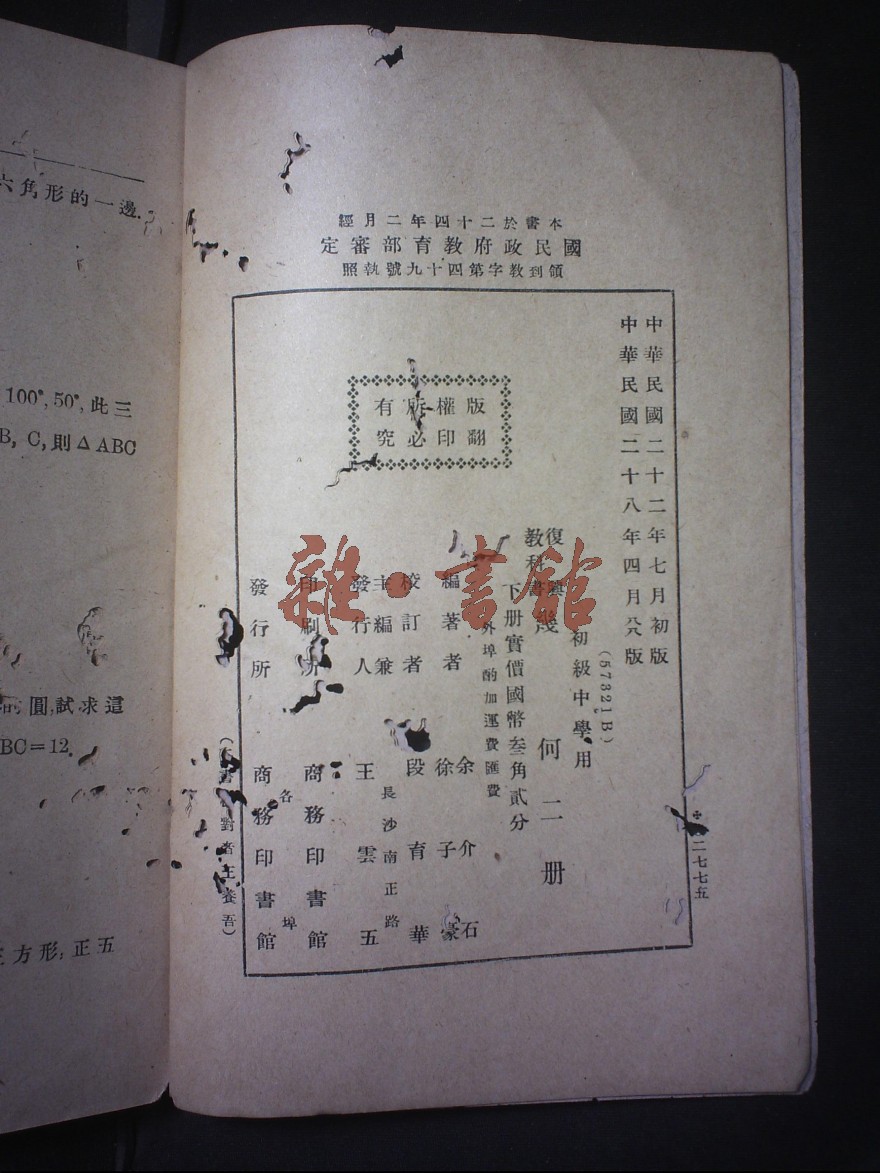 六角形的一邊.
100°, 50°, 此三
B, C, 則 △ABC
圓,試求這
BC=12.
方形;正五
本書於二十四年二月經
國民政府教育部審定
領到教字第四十九號執照
中華民國二十二年七月初版
中華民國二十八年四月
版
(57321B)
初級中學用
復興
教科書
幾何二册
下册實價國幣叁角貳分
外埠酌加運費匯費
版權所有
翻印必究
編著者 余介石
徐子豪
校訂者 段育華
主編兼
發行人 王雲五
長沙南正路
印刷所 商務印書館
發行所 商務印書館
各埠
對者王養吾)
二七七五
雜·書館